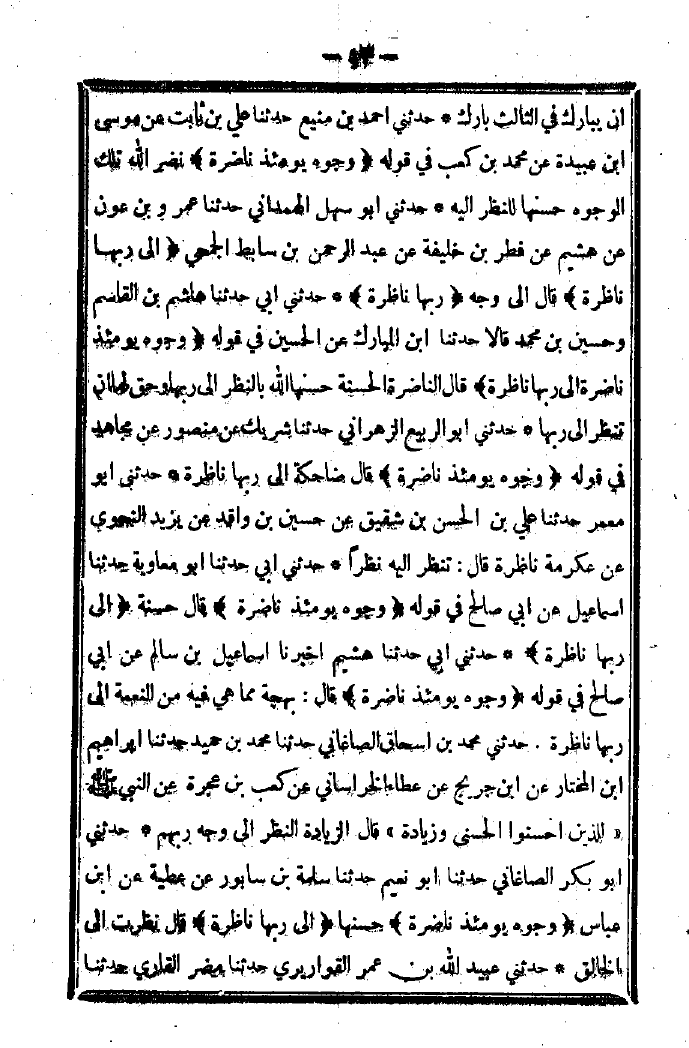 — ٥٣ —
انى يبارك في الثالث بارك * حدثني احمد بن منيع حدثنا علي بن ثابت عن موسى
ابن عبيدة عن محمد بن كعب في قوله ﴿ وجوه يومئذ ناضرة ﴾ نضر الله تلك
الوجوه حسنها للنظر اليه * حدثني ابو سهل الهمداني حدثنا عمر و بن عون
عن هشيم عن فطر بن خليفة عن عبد الرحمن بن سابط الجمحي ﴿ الى ربها
ناظرة ﴾ قال الى وجه ﴿ ربها ناظرة ﴾ * حدثني ابي حدثنا هاشم بن القاسم
وحسين بن محمد قالا حدثنا ابن المبارك عن الحسين في قوله ﴿ وجوه يومئذ
ناضرة الى ربها ناظرة﴾ قال الناضرة الحسنة حسنها الله بالنظر الى ربها وحق لها ان
تنظر الى ربها * حدثني ابو الربيع الزهراني حدثنا شريك عن منصور عن مجاهد
في قوله ﴿ وجوه يومئذ ناضرة ﴾ قال ضاحكة الى ربها ناظرة * حدثني ابو
معمر حدثنا علي بن الحسن بن شقيق عن حسين بن واقد عن يزيد النحوي
عن عكرمة ناظرة قال : تنظر اليه نظراً * حدثني ابي حدثنا ابو معاوية حدثنا
اسماعيل عن ابي صالح في قوله ﴿ وجوه يومئذ ناضرة ﴾ قال حسنة ﴿ الى
ربها ناظرة ﴾ * حدثني ابي حدثنا هشيم اخبرنا اسماعيل بن سالم عن ابي
صالح في قوله ﴿ وجوه يومئذ ناضرة ﴾ قال : بهجة مما هي فيه من النعمة الى
ربها ناظرة . حدثني محمد بن اسحاق الصاغاني حدثنا محمد بن حميد حدثنا ابراهيم
ابن المختار عن ابن جريج عن عطاء الخراساني عن كعب بن عجرة عن النبي ﷺ
« للذين احسنوا الحسنى وزيادة » قال الزيادة النظر الى وجه ربهم * حدثني
ابو بكر الصاغاني حدثنا ابو نعيم حدثنا سلمة بن سابور عن عطية عن ابن
عباس ﴿ وجوه يومئذ ناضرة ﴾ حسنها ﴿ الى ربها ناظرة ﴾ قال نظرت الى
الخالق * حدثني عبيد الله بن عمر القواريري حدثنا مضر القاري حدثنا